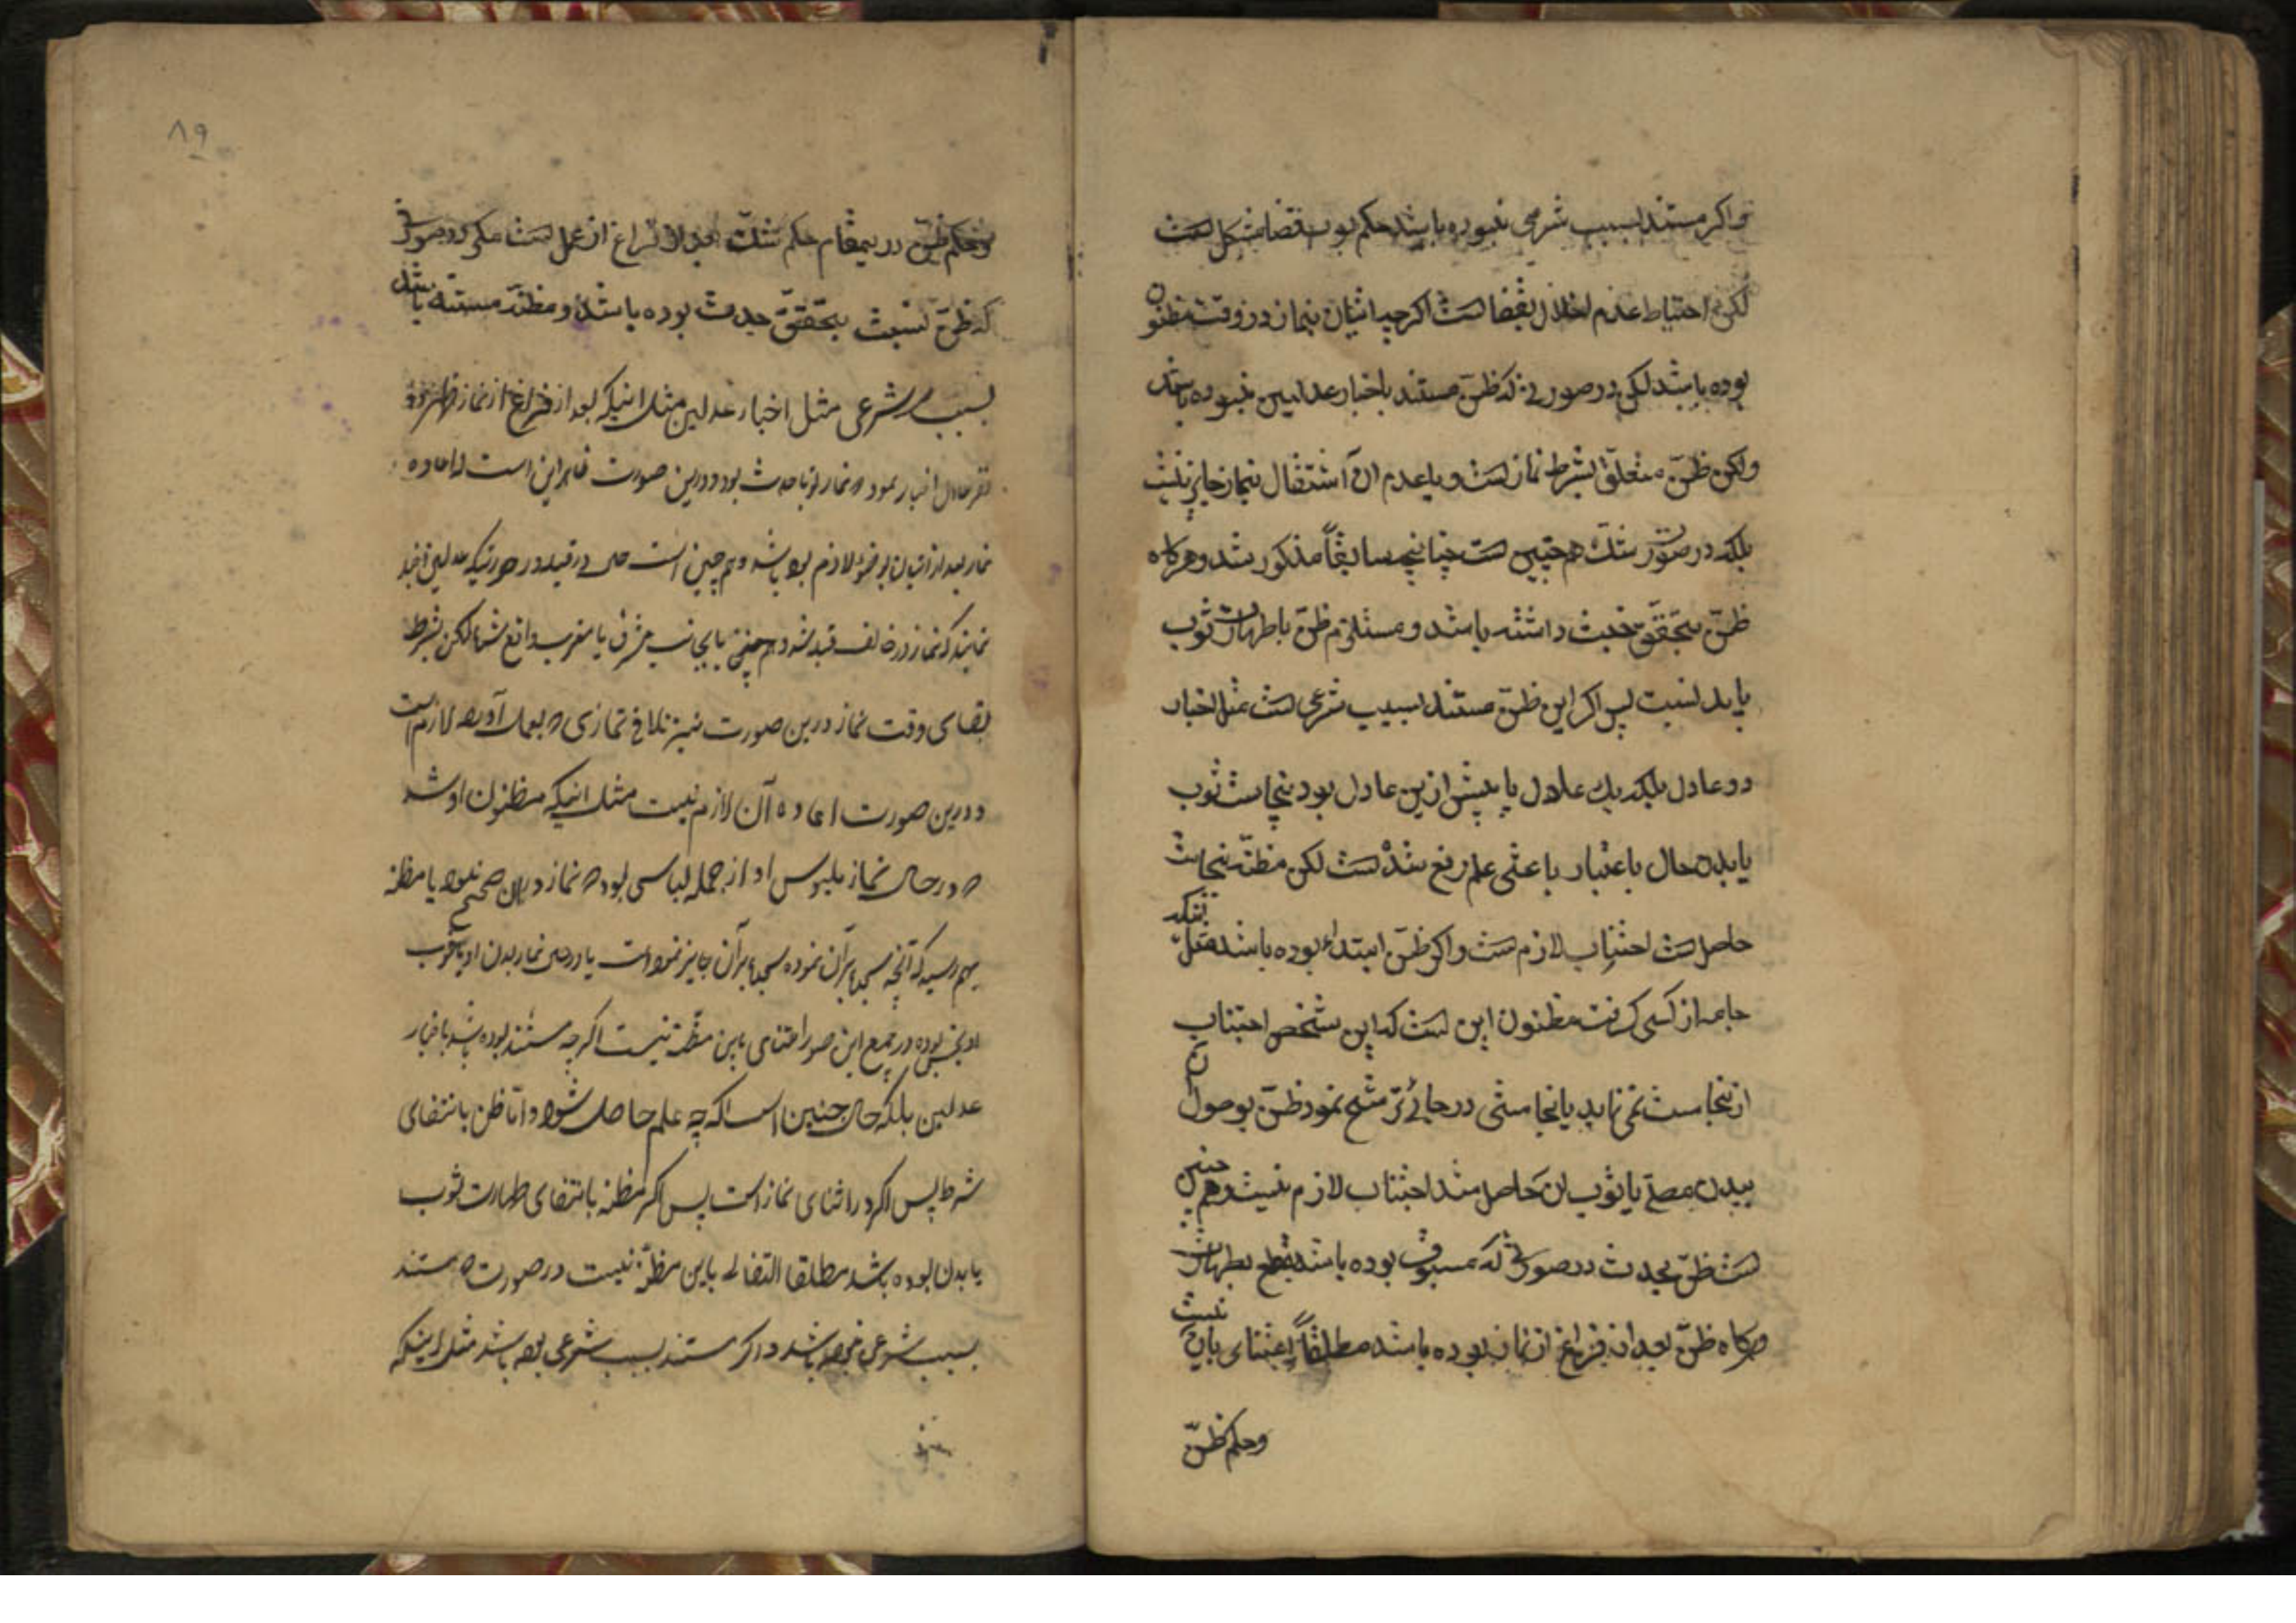 واکر مستند بسبب شرعی نبوده باشد حکم بوجوب قضا مشکل است
لکن احتیاط عدم اخلال بقضا است اکرچه اتیان بنماز در وقت مظنون
بوده باشد لکن در صورتی که ظنّ مستند باخبار عدلین نبوده باشد
ولکن ظنّ متعلّق بشرط نماز است و یا عدم آن اشتغال بنماز جایز نیست
بلکه در صورت شکّ هم چنین است چنانچه سابقاً مذکور شد و هرکاه
ظنّ بتحقّق خبث داشته باشد و مستلزم ظنّ باطهارت ثوب
یا بدن نیست پس اکر این ظنّ مستند بسبب شرعی است مثل اخبار
دو عادل بلکه یك عادل یا پیش ازین عادل بود نجاست ثوب
یا بدن حال باعتبار باعثی علم رفع شده است لکن مظنّه نجاست
حاصل است اجتناب لازم است و اکر ظنّ ابتداء بوده باشد مثل اینکه
جامه از کسی کرفت مظنون این است که این شخص اجتناب
از نجاست نمی نماید یا نجاستی در جائی ترشّح نمود ظنّ بوصول آن
ببدن مصلّی یا ثوب آن حاصل شد اجتناب لازم نیست و هم چنین
است ظنّ بحدث در صورتی که مسبوق بوده باشد بقطع بطهارت
و هرکاه ظنّ بعد از فراغ از نماز بوده باشد مطلقاً اعتنای بآن نیست
وحکم ظنّ
۸۹
وحکم ظنّ در بیمقام حکم شکّ بعد از فراغ از عمل است مکر در صورتی
که ظنّ نسبت بتحقّق حدث بوده باشد و مظنّه مستند باشد
بسبب شرعی مثل اخبار عدلین مثل اینکه بعد از فراغ از نماز
نفر عادل اخبار نمود که نماز تو با حدث بود و درین صورت ظاهر این است که اعاده
نماز بعد از اتیان بوضو لازم بوده باشد و هم چنین است در قبله در صورتیکه عدلین اخبار
نمایند که نماز در خلاف قبله شد و هم چنین بجانب مشرق یا مغرب واقع شد لکن بشرط
بقای وقت نماز درین صورت نیز تلافی نمازی که بعمل آورده لازم است
و درین صورت اعاده آن لازم نیست مثل اینکه مظنون او شد
که در حال نماز ملبوس او از جمله لباسی بوده که نماز در آن صحیح نبود یا مظنه
بهم رسید که آنچه سجده بر آن نموده سجده بر آن جایز نبوده است یا در حال نماز بدن او یا ثوب
او نجس بوده در جمیع این صور اعتنای باین مظنّه نیست اکر چه مستند بوده باشد باخبار
عدلین بلکه حال چنین است اکر چه علم حاصل شود و امّا ظن بانتفای
شرط پس اکر در اثنای نماز است پس اکر مظنه بانتفای طهارت ثوب
یا بدن بوده باشد مطلقا التفاتی باین مظنّه نیست در صورت که مستند
بسبب شرعی نبوده باشد و اکر مستند بسبب شرعی بوده باشد مثل اینکه